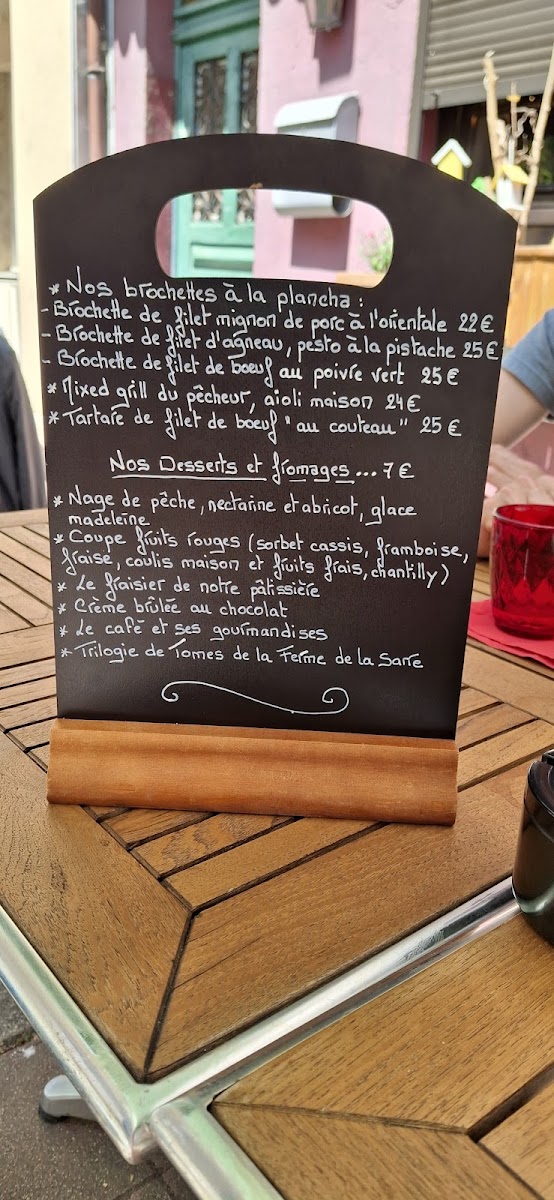 * Nos brochettes à la plancha :
- Brochette de filet mignon de porc à l'orientale 22 €
- Brochette de filet d'agneau, pesto à la pistache 25 €
- Brochette de filet de boeuf au poivre vert 25 €
* Mixed grill du pêcheur, aioli maison 24 €
* Tartare de filet de boeuf "au couteau" 25 €
Nos Desserts et fromages ... 7 €
* Nage de pêche, nectarine et abricot, glace
madeleine
* Coupe fruits rouges (sorbet cassis, framboise,
fraise, coulis maison et fruits frais, chantilly)
* Le fraisier de notre pâtissière
* Crème brûlée au chocolat
* Le café et ses gourmandises
* Trilogie de Tomes de la Ferme de la Sarre